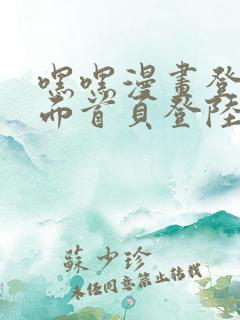 嘿嘿漫畫登
面首頁登陸
蘇少珍
未經同意禁止轉載